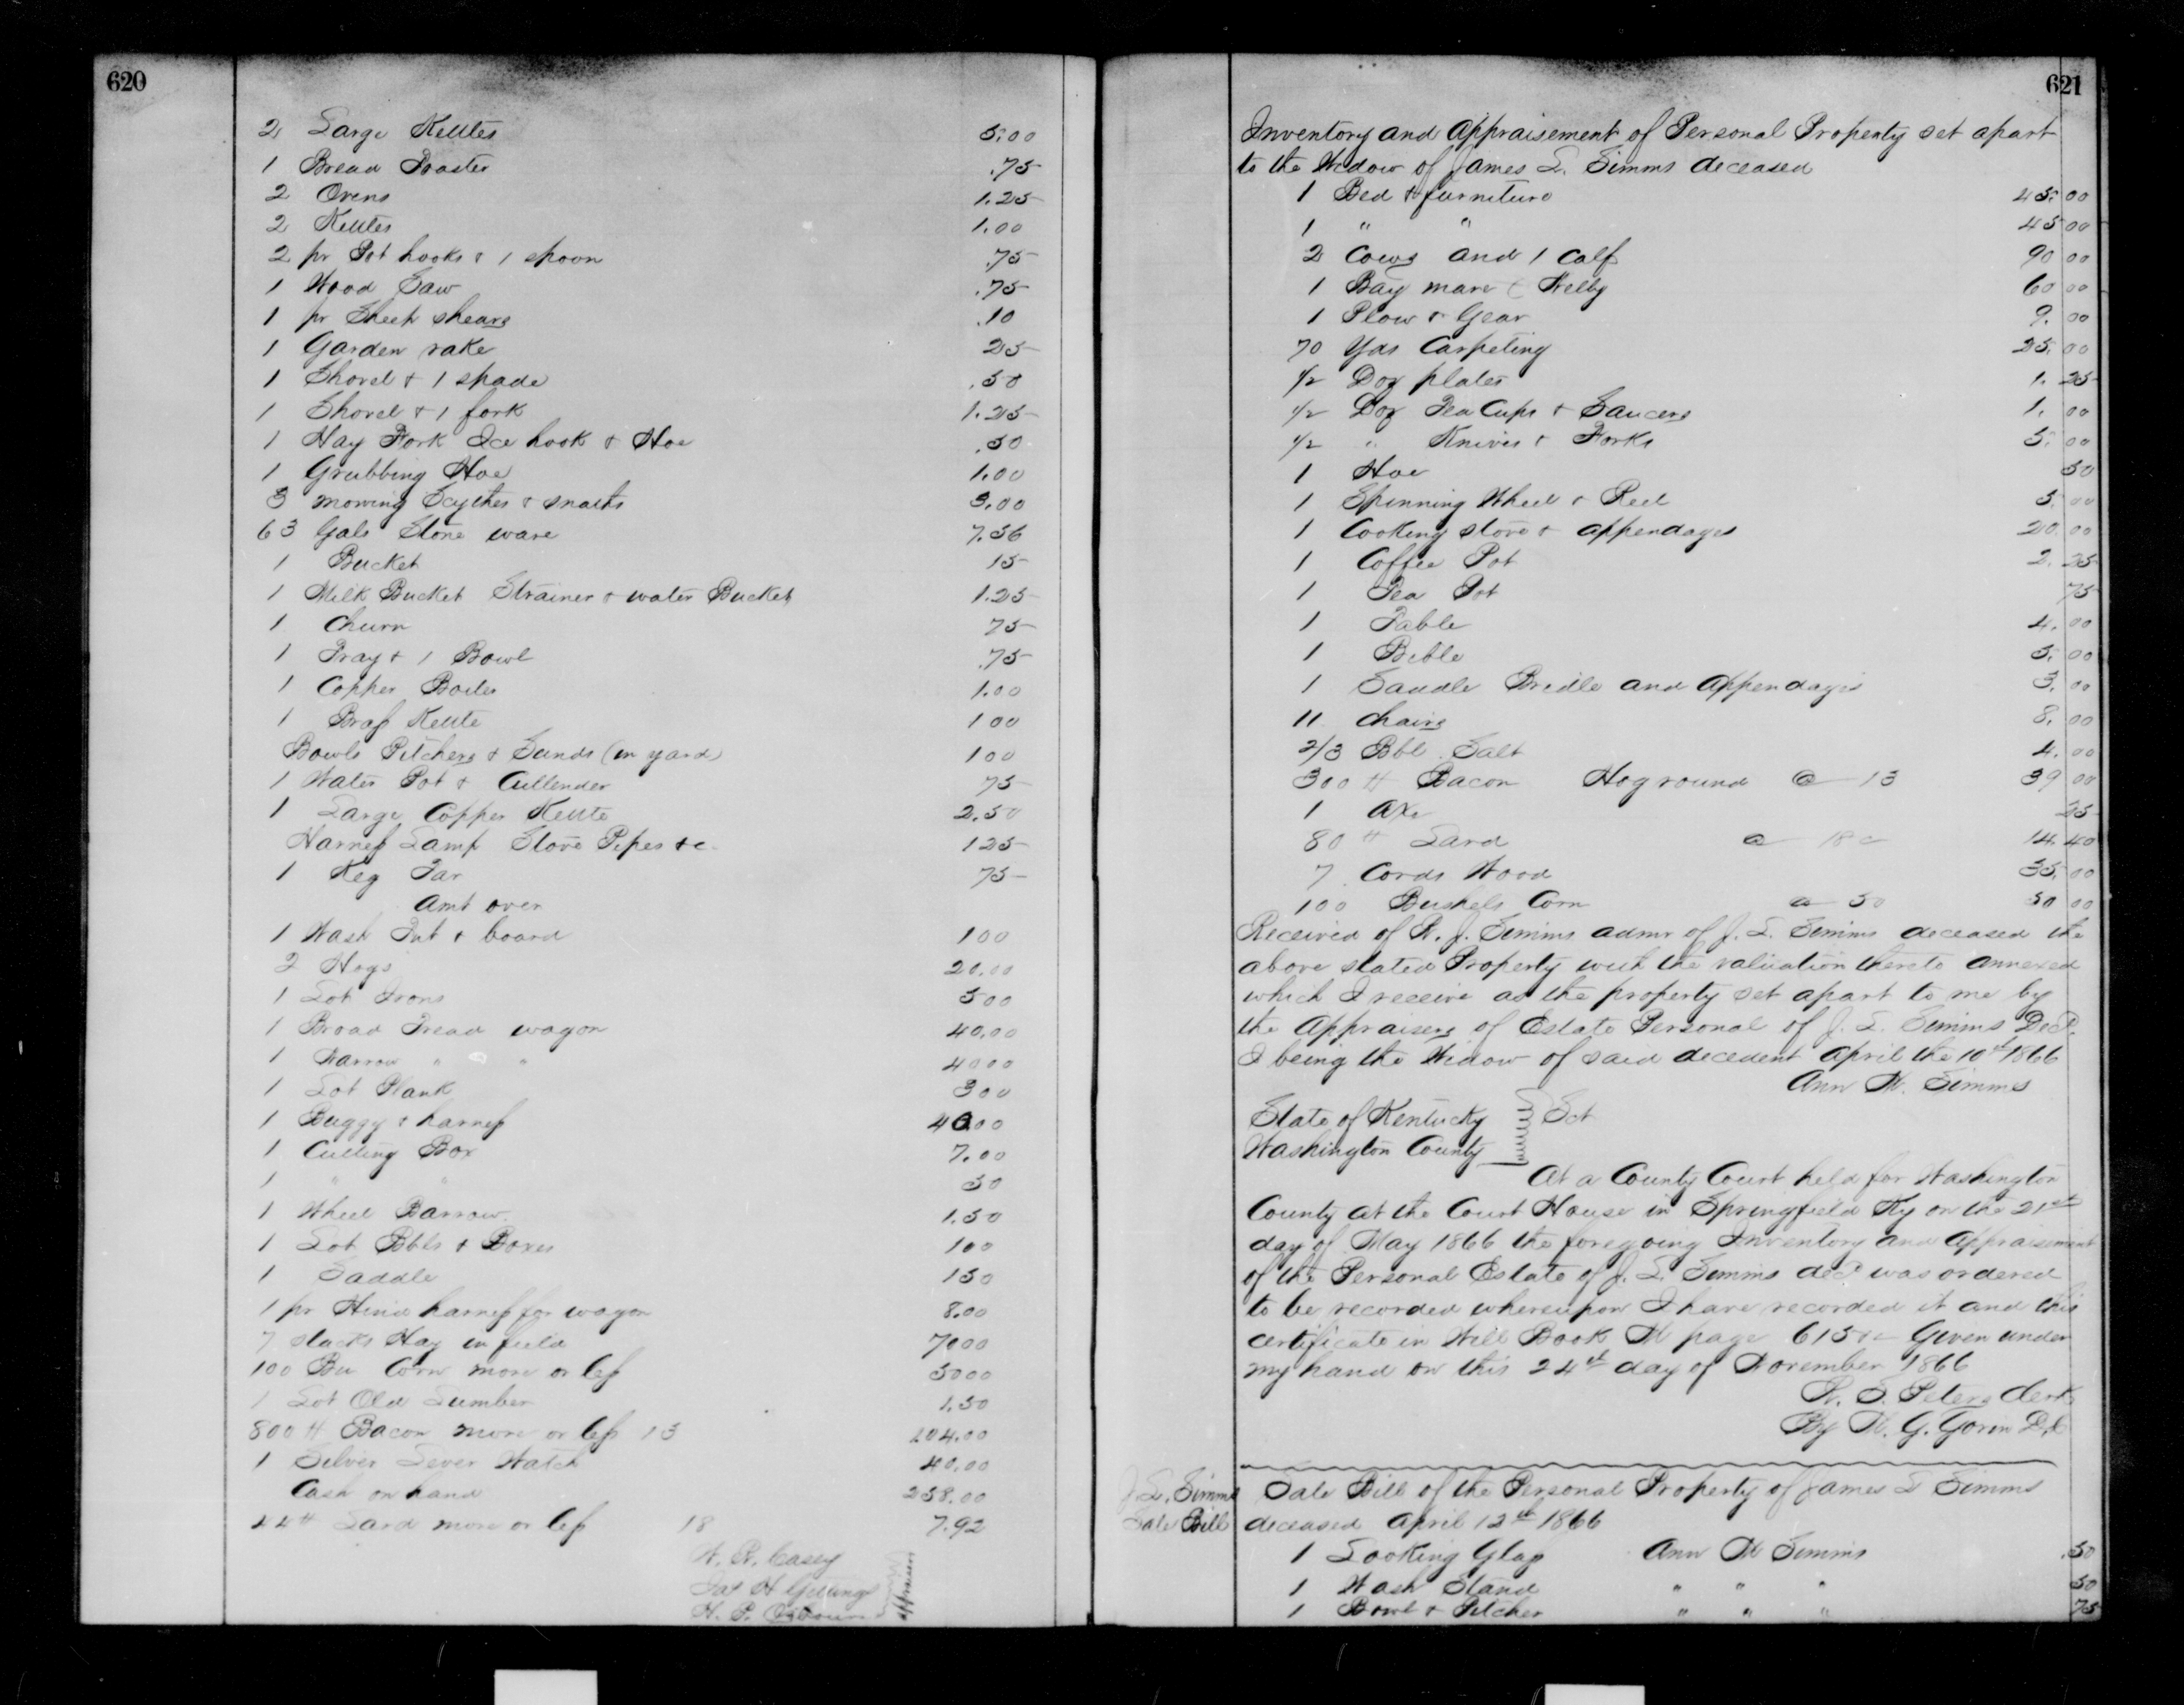 620
2 Large Kettles 5.00
1 Bread Toaster .75
2 Ovens 1.25
2 Kettles 1.00
2 pr Pot hooks & 1 spoon .75
1 Wood Saw .75
1 pr Sheep shears .10
1 Garden rake 25
1 Shovel & 1 spade .50
1 Shovel & 1 fork 1.25
1 Hay Fork Ice hook & Hoe .50
1 Grubbing Hoe 1.00
3 mowing Scythes & snaths 3.00
63 Gals Stone ware 7.56
1 Bucket 15
1 Milk Bucket Strainer & water Bucket 1.25
1 Churn 75
1 Tray & 1 Bowl .75
1 Copper Boiler 1.00
1 Brass Kettle 1 00
Bowls Pitchers & Sands (in yard) 1 00
1 Water Pot & Cullender 75
1 Large Copper Kettle 2.50
Harness Lamp Stove Pipes &c 1 25
1 Keg Tar 75
Amt over
1 Wash Tub & board 1 00
2 Hogs 20.00
1 Lot Irons 5 00
1 Broad Tread wagon 40.00
1 Narrow " " 40 00
1 Lot Plank 3 00
1 Buggy & harness 40 00
1 Cutting Box 7.00
1 " " 50
1 Wheel Barrow 1.50
1 Lot Bbls & Boxes 1 00
1 Saddle 1 50
1 pr Hind harness for wagon 8.00
7 stacks Hay in field 70 00
100 Bu Corn more or less 50 00
1 Lot Old Lumber 1.50
800 # Bacon more or less 13 104.00
1 Silver Lever Watch 40.00
Cash on hand 258.00
44 # Lard more or less 18 7.92
W. R. Casey
Jas H Gettings
H. P. Osbourn
appraisers
621
Inventory and Appraisement of Personal Property set apart
to the Widow of James L. Simms deceased
1 Bed & furniture 45.00
1 " " 45 00
2 Cows and 1 Calf 90 00
1 Bay mare 60 00
1 Plow & Gear 9.00
70 Yds Carpeting 25.00
1/2 Doz plates 1.25
1/2 Doz Tea Cups & Saucers 1.00
1/2 " Knives & Forks 5.00
1 Hoe 50
1 Spinning Wheel & Reel 5.00
1 Cooking stove & appendages 20.00
1 Coffee Pot 2.25
1 Tea Pot 75
1 Table 4.00
1 Bible 5.00
1 Saddle Bridle and Appendages 3.00
11 Chairs 8.00
2/3 Bbl Salt 4.00
300 # Bacon Hog round @ 13 39 00
1 Axe 25
80 # Lard @ 18 c 14.40
7 Cords Wood 35.00
100 Bushels Corn @ 50 50 00
Received of R. J. Simms admr of J. L. Simms deceased the
above stated Property with the valuation thereto annexed
which I receive as the property set apart to me by
the Appraisers of Estate Personal of J. L. Simms Decd.
I being the Widow of said decedent April the 10th 1866
Ann M. Simms
State of Kentucky
Washington County Sct
At a County Court held for Washington
County at the Court House in Springfield Ky on the 21st
day of May 1866 the foregoing Inventory and Appraisement
of the Personal Estate of J. L. Simms decd was ordered
to be recorded whereupon I have recorded it and this
certificate in Will Book M page 615 &c Given under
my hand on this 24th day of November 1866
W. S. Peters Clerk
By M. G. Gorin D.C
J. L. Simms
Sale Bill
Sale Bill of the Personal Property of James L Simms
deceased April 12th 1866
1 Looking Glass Ann M Simms .50
1 Wash Stand " " " 50
1 Bowl & Pitcher " " " 75